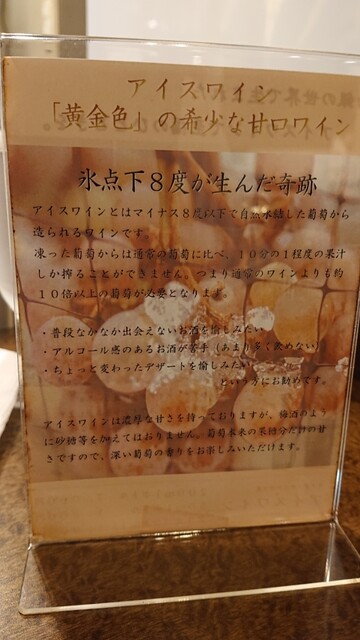 アイスワイン
「黄金色」の希少な甘口ワイン
氷点下８度が生んだ奇跡
アイスワインとはマイナス８度以下で自然氷結した葡萄から
造られるワインです。
凍った葡萄からは通常の葡萄に比べ、１０分の１程度の果汁
しか搾ることができません。つまり通常のワインよりも約
１０倍以上の葡萄が必要となります。
・普段なかなか出会えないお酒を愉しみたい
・アルコール感のあるお酒が苦手（あまり多く飲めない）
・ちょっと変わったデザートを愉しみたい
という方にお勧めです。
アイスワインは濃厚な甘さを持っておりますが、梅酒のよう
に砂糖等を加えてはおりません。葡萄本来の果糖分だけの甘
さですので、深い葡萄の香りをお楽しみいただけます。